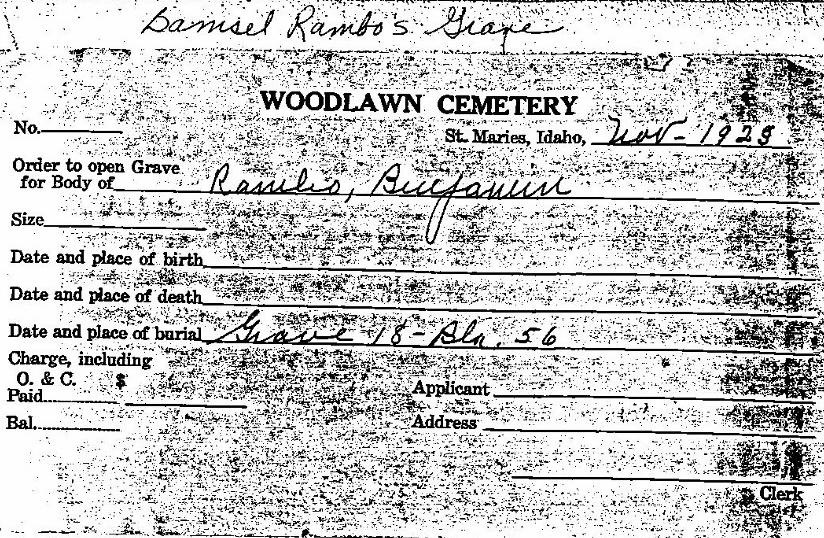 Damsel Rambo's Grave
WOODLAWN CEMETERY
No.
St. Maries, Idaho, Nov- 1923
Order to open Grave
for Body of Rambo, Benjamin
Size
Date and place of birth
Date and place of death
Date and place of burial Grave 18- Blk. 56
Charge, including
O. & C. $
Paid
Applicant
Bal.
Address
Clerk